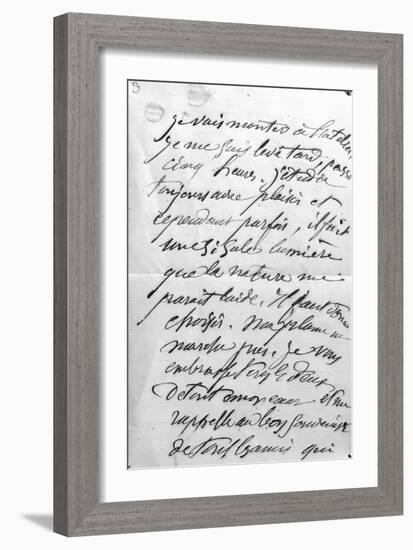 3
je vais monter à l'atelier
je me suis levé tard, passé
cinq heures. J'étudie
toujours avec plaisir et
cependant parfois, il fait
une si sale lumière
que la nature me
parait laide. Il faut donc
choisir. Ma plume ne
marche pas. Je vous
embrasse tous les deux
de tout mon cœur et me
rappelle au bon souvenir
de tous les amis qui